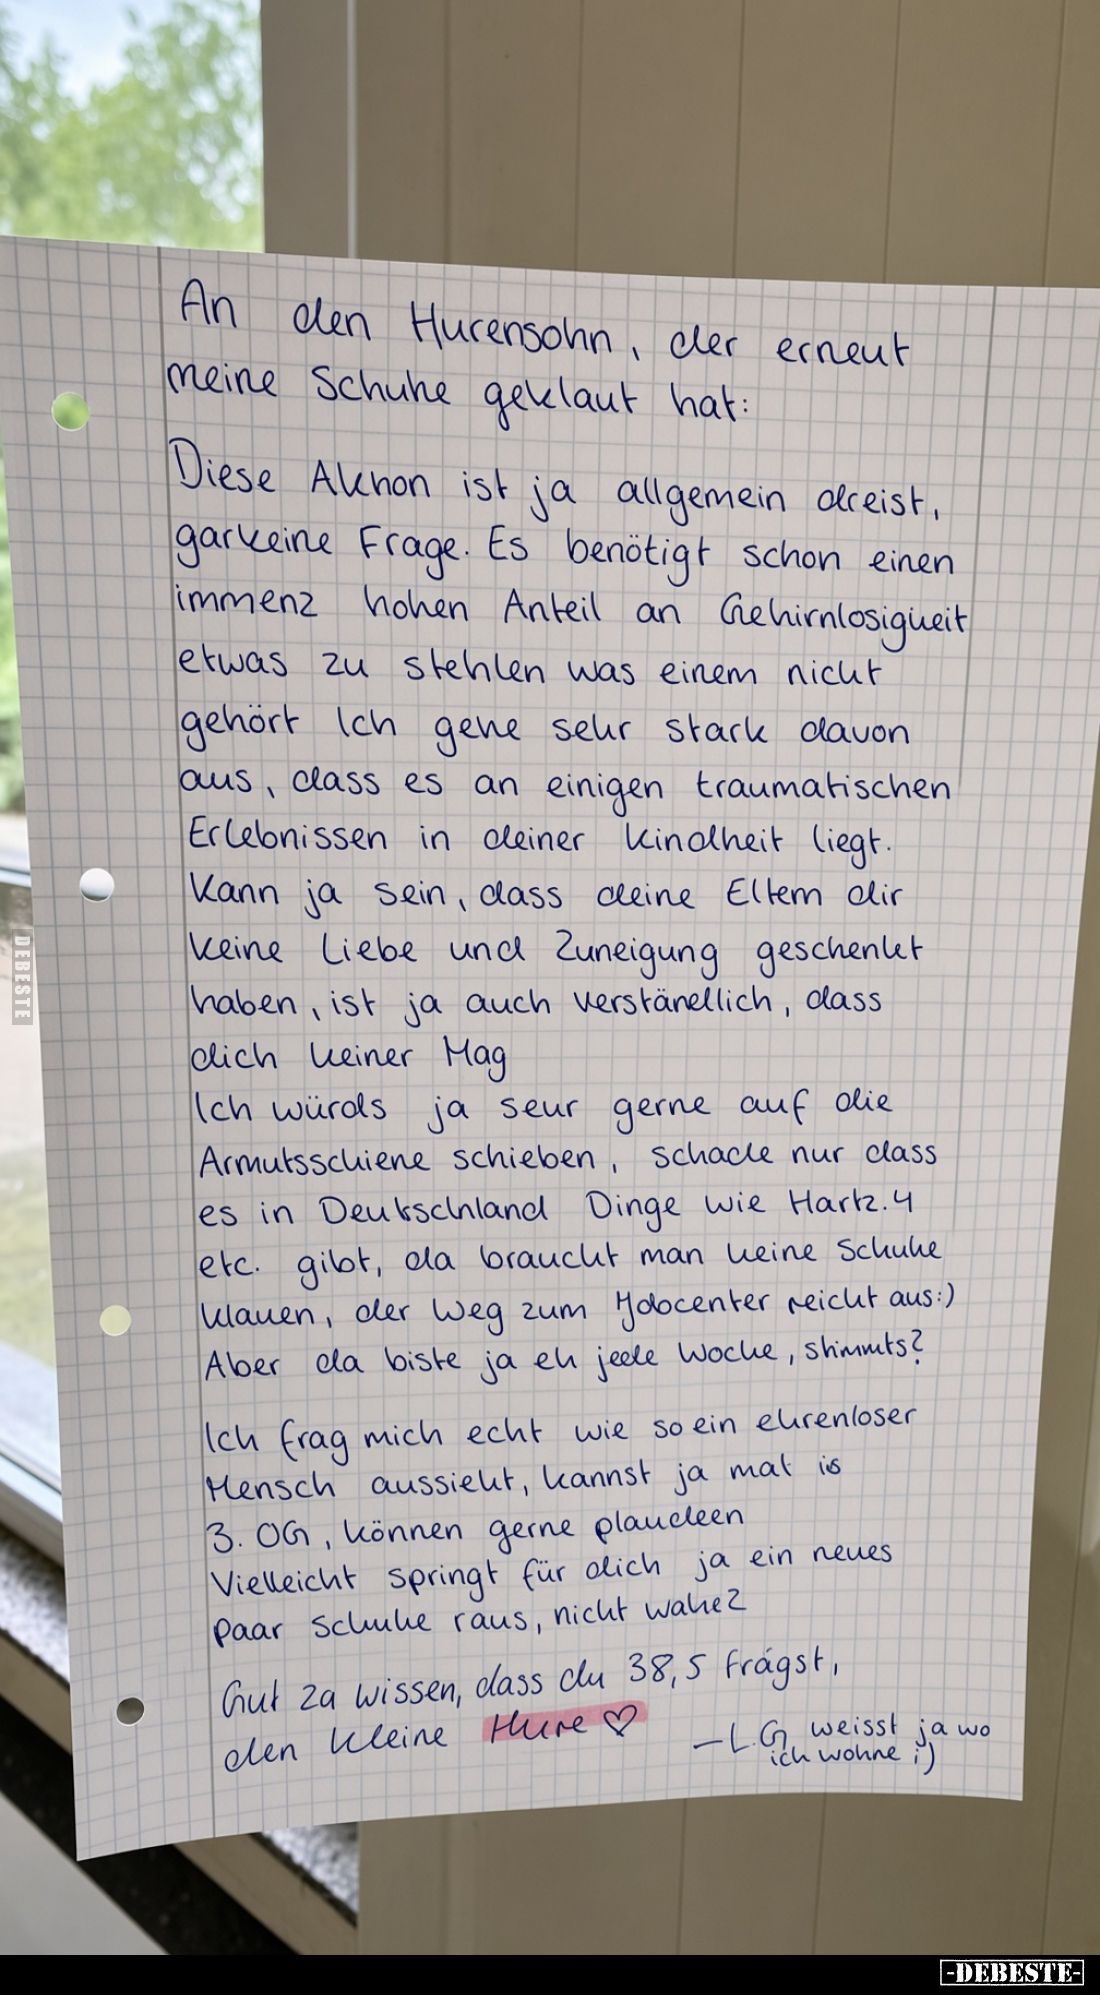 An den Hurensohn, der erneut
meine Schuhe geklaut hat:
Diese Aknon ist ja allgemein dreist,
garkeine Frage. Es benötigt schon einen
immenz hohen Anteil an Gehirnlosigkeit
etwas zu stehlen was einem nicht
gehört Ich gehe sehr stark davon
aus, dass es an einigen traumatischen
Erlebnissen in deiner Kindheit liegt.
Kann ja sein, dass deine Eltern dir
keine Liebe und Zuneigung geschenkt
haben, ist ja auch verständlich, dass
dich keiner Mag
Ich würds ja sehr gerne auf die
Armutsschiene schieben, schade nur dass
es in Deutschland Dinge wie Hartz.4
etc. gibt, da braucht man keine Schuhe
klauen, der Weg zum Jobcenter reicht aus:)
Aber da biste ja eh jede Woche, stimmts?
Ich frag mich echt wie so ein ehrenloser
Mensch aussieht, kannst ja mal is
3. OG, können gerne plaudeen
Vielleicht springt für dich ja ein neues
paar Schuhe raus, nicht wahe?
Gut za wissen, dass du 38,5 frägst,
den kleine Hure ♡
-L.G weisst ja wo
ich wohne ;)
DEBESTE
-DEBESTE-